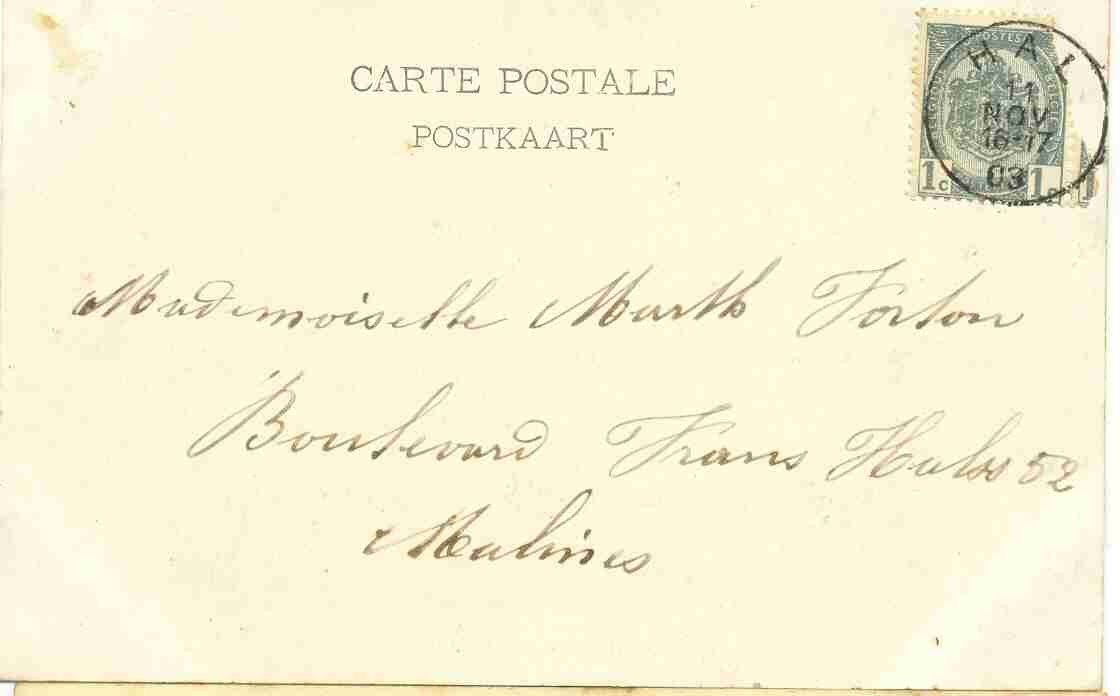 CARTE POSTALE
POSTKAART
POSTES
HAL
11
NOV
16-17
03
1c 1c
Mademoiselle Marth Forton
Boulevard Frans Hals 52
Malines